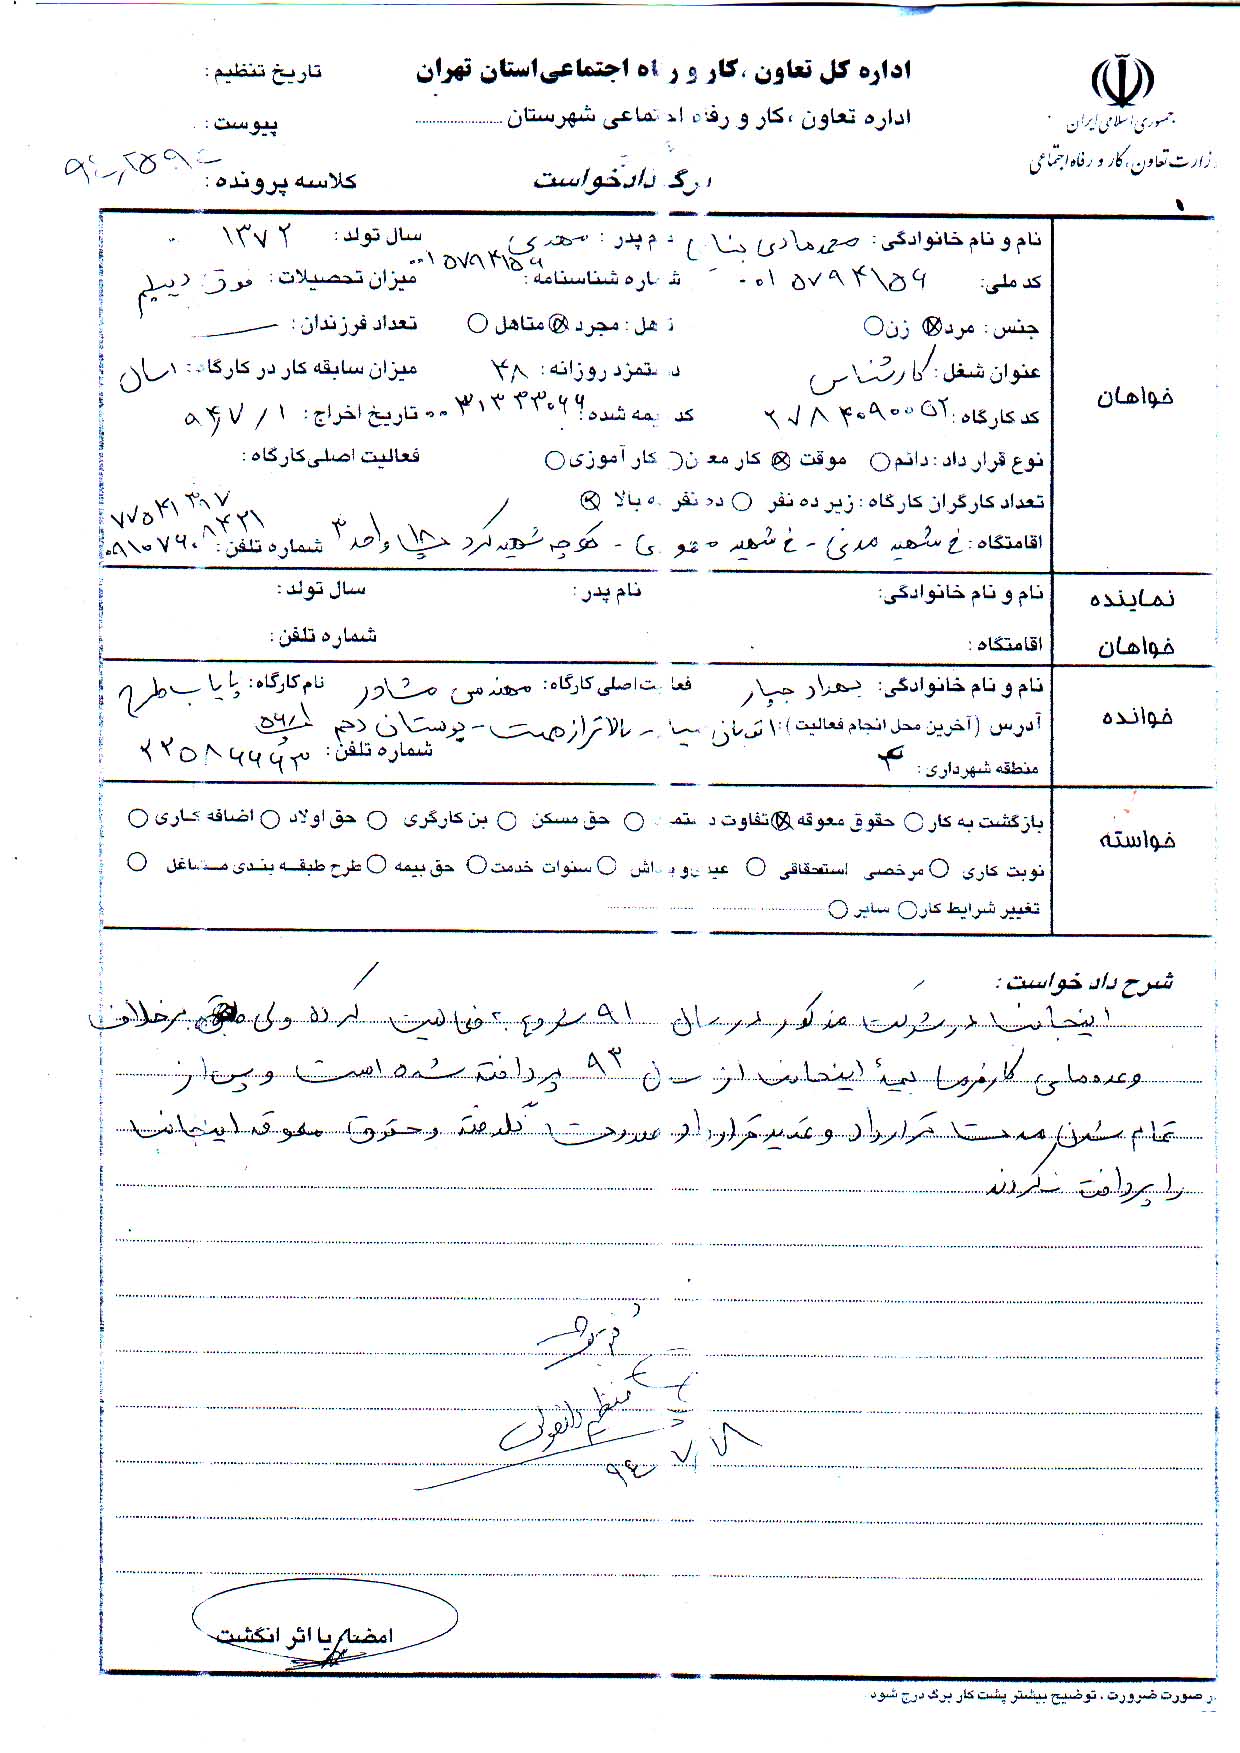 جمهوری اسلامی ایران
وزارت تعاون، کار و رفاه اجتماعی
اداره کل تعاون ،کار و رفاه اجتماعی استان تهران
اداره تعاون ،کار و رفاه اجتماعی شهرستان
برگ دادخواست
تاریخ تنظیم :
پیوست :
کلاسه پرونده :
خواهان
نام و نام خانوادگی: محمدهادی نام پدر : مهدی سال تولد : ۱۳۷۲
کد ملی: ۰۰۱۵۷۹۴۱۵۶ شماره شناسنامه : ۰۰۱۵۷۹۴۱۵۶ میزان تحصیلات : فوق دیپلم
جنس : مرد زن تاهل : مجرد متاهل تعداد فرزندان :
عنوان شغل : کارشناس دستمزد روزانه : ۴۸ میزان سابقه کار در کارگاه : ۱سال
کد کارگاه : ۲۷۸۴۰۹۰۰۵۲ کد بیمه شده : تاریخ اخراج : ۹۴/۷/۱
نوع قرار داد : دائم موقت کار معین کار آموزی فعالیت اصلی کارگاه :
تعداد کارگران کارگاه : زیر ده نفر ده نفر به بالا
اقامتگاه : خ شهید مدنی - خ شهید - کوچه شهید کرد پ ۱۸ واحد ۳ شماره تلفن : ۷۷۵۴۱۳۱۷
نماینده خواهان
نام و نام خانوادگی: نام پدر : سال تولد :
اقامتگاه : شماره تلفن :
خوانده
نام و نام خانوادگی: بهزاد جبار فعالیت اصلی کارگاه : مهندسی مشاور نام کارگاه : پایاب طرح
آدرس (آخرین محل انجام فعالیت) : اتوبان - بالاتر از همت - بوستان دهم
منطقه شهرداری : ۴ شماره تلفن : ۲۲۵۸۶۶۶۳
خواسته
بازگشت به کار حقوق معوقه تفاوت دستمزد حق مسکن بن کارگری حق اولاد اضافه کاری
نوبت کاری مرخصی استحقاقی عیدی و پاداش سنوات خدمت حق بیمه طرح طبقه بندی مشاغل
تغییر شرایط کار سایر
شرح داد خواست :
اینجانب در شرکت مذکور در سال ۹۱ شروع به فعالیت کرده ولی برخلاف
وعدههای کارفرما بیمهٔ اینجانب از سال ۹۳ پرداخته شده است و پس از
تمام شدن مدت قرارداد و تمدید قرارداد صورت نگرفته و حقوق معوقه اینجانب
را پرداخت نکردند
۹۴/۷/۷
امضاء یا اثر انگشت
در صورت ضرورت ، توضیح بیشتر پشت کار برگ درج شود